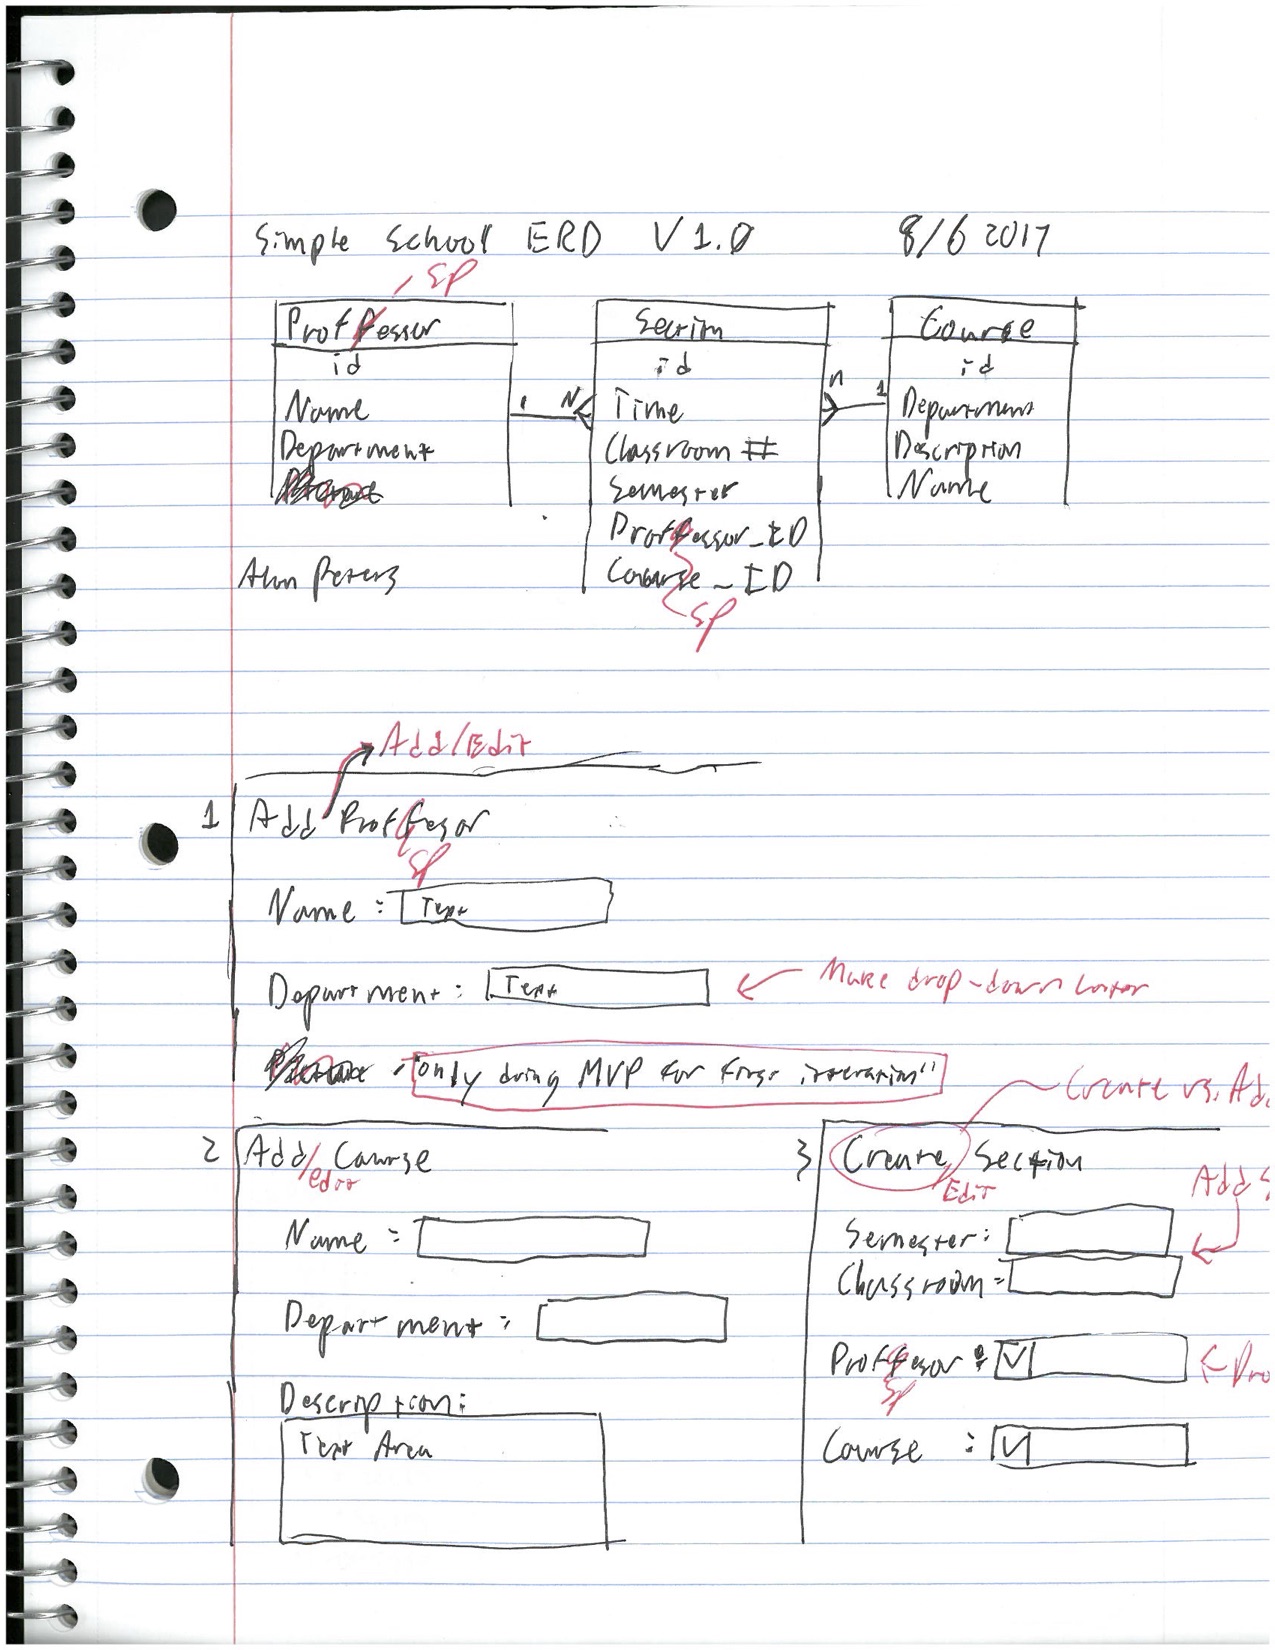 Simple School ERD V 1.0 8/6 2017
SP
Proffessor
id
Name
Department
Section
id
Time
Classroom #
Semester
Proffessor_ID
Course_ID
SP
Course
id
Department
Description
Name
1 N
n 1
Alan Peters
Add/Edit
1 Add Proffesor
SP
Name : Text
Department : Text
Make drop-down later
"only doing MVP for first itteration"
Create vs. Ad
2 Add/ Course
edit
Name :
Department :
Description :
Text Area
3 Create Section
Edit
Add
Semester :
Classroom :
Proffesor : V
SP
Pro
Course : V